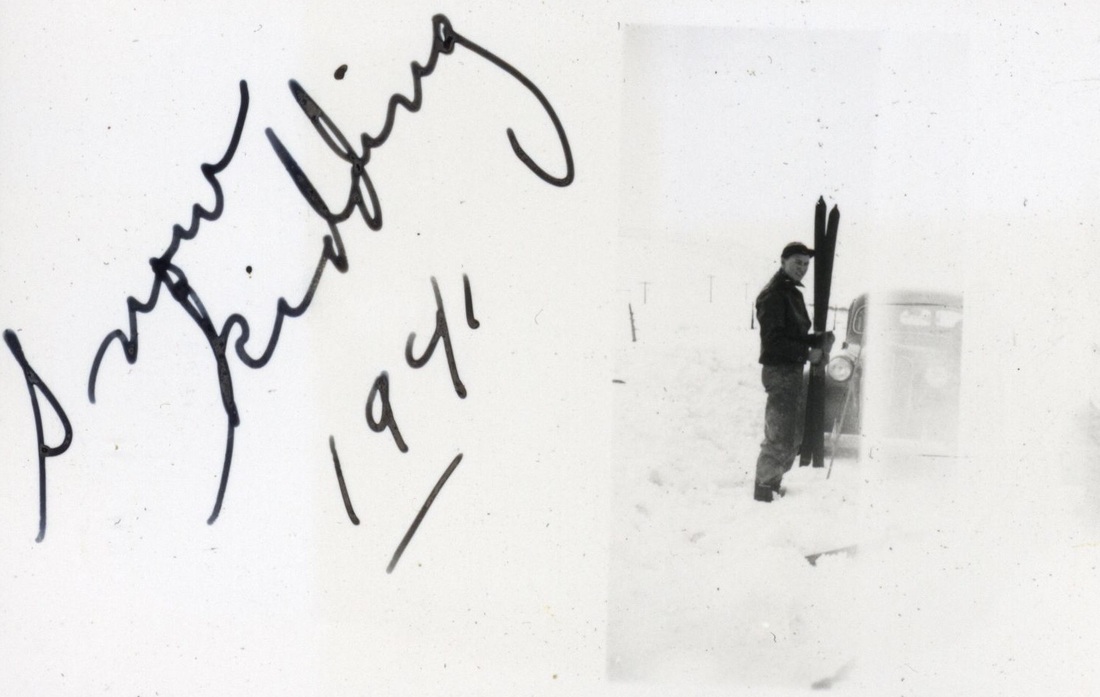 Snow
Kidding
1941